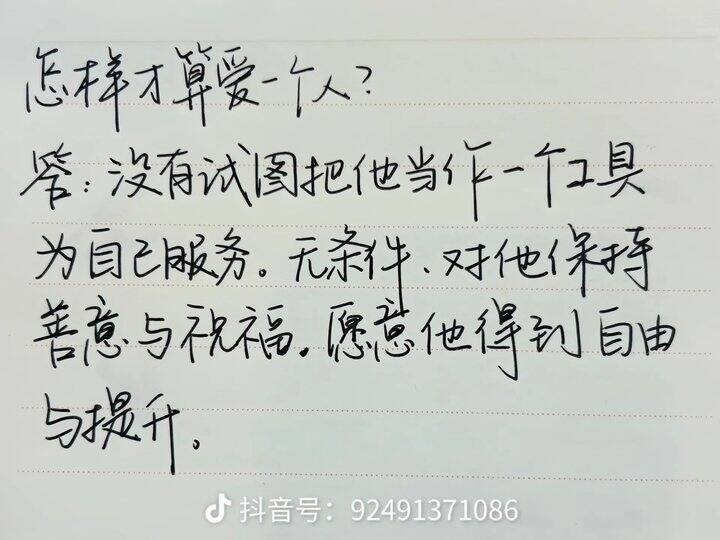 怎样才算爱一个人?
答:没有试图把他当作一个工具
为自己服务。无条件、对他保持
善意与祝福。愿意他得到自由
与提升。
抖音号：92491371086